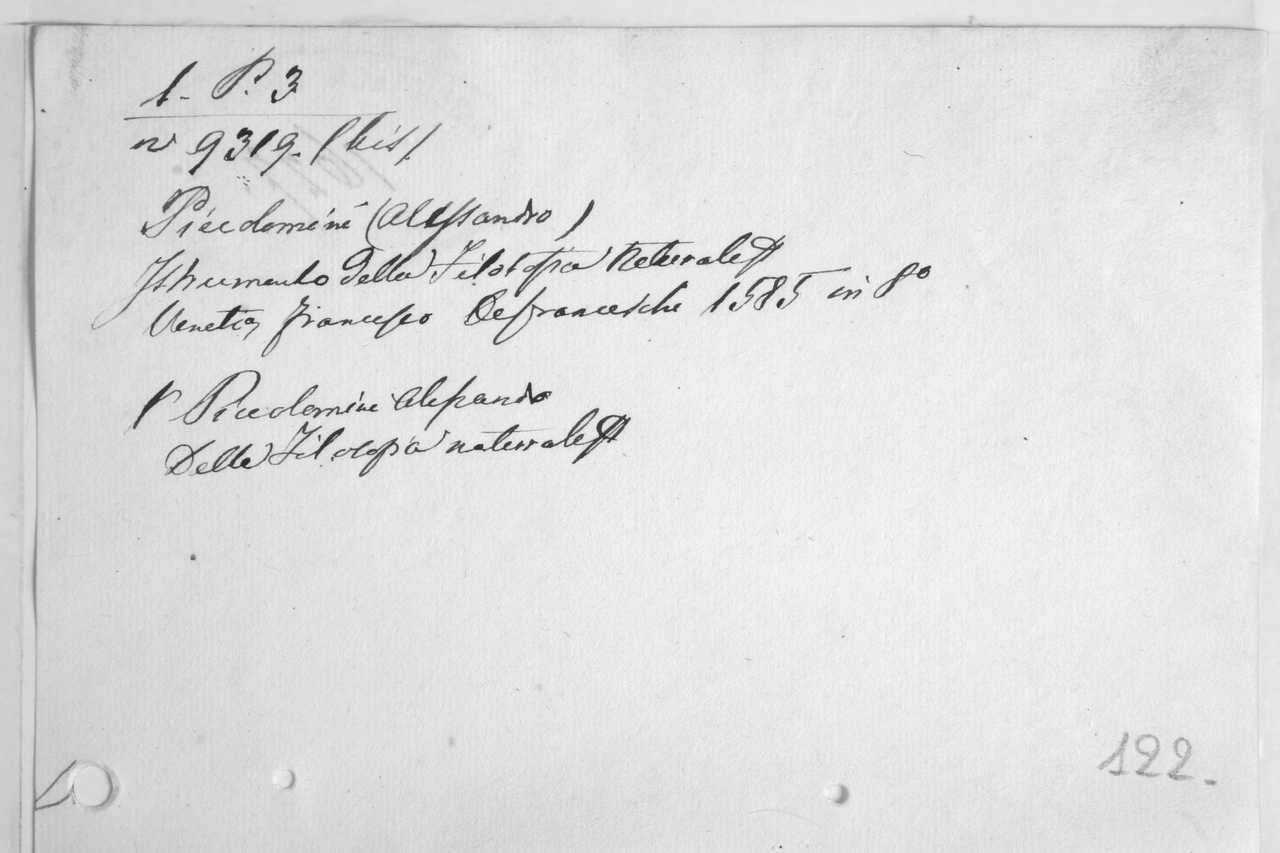 1. P. 3
nº 9319. (bis).
Piccolomini (Alessandro)
Istrumento della Filosofia Naturale
Venetia, Francesco Defranceschi 1585 in 8º
Vº Piccolomini Alessandro
Della Filosofia naturale
122.